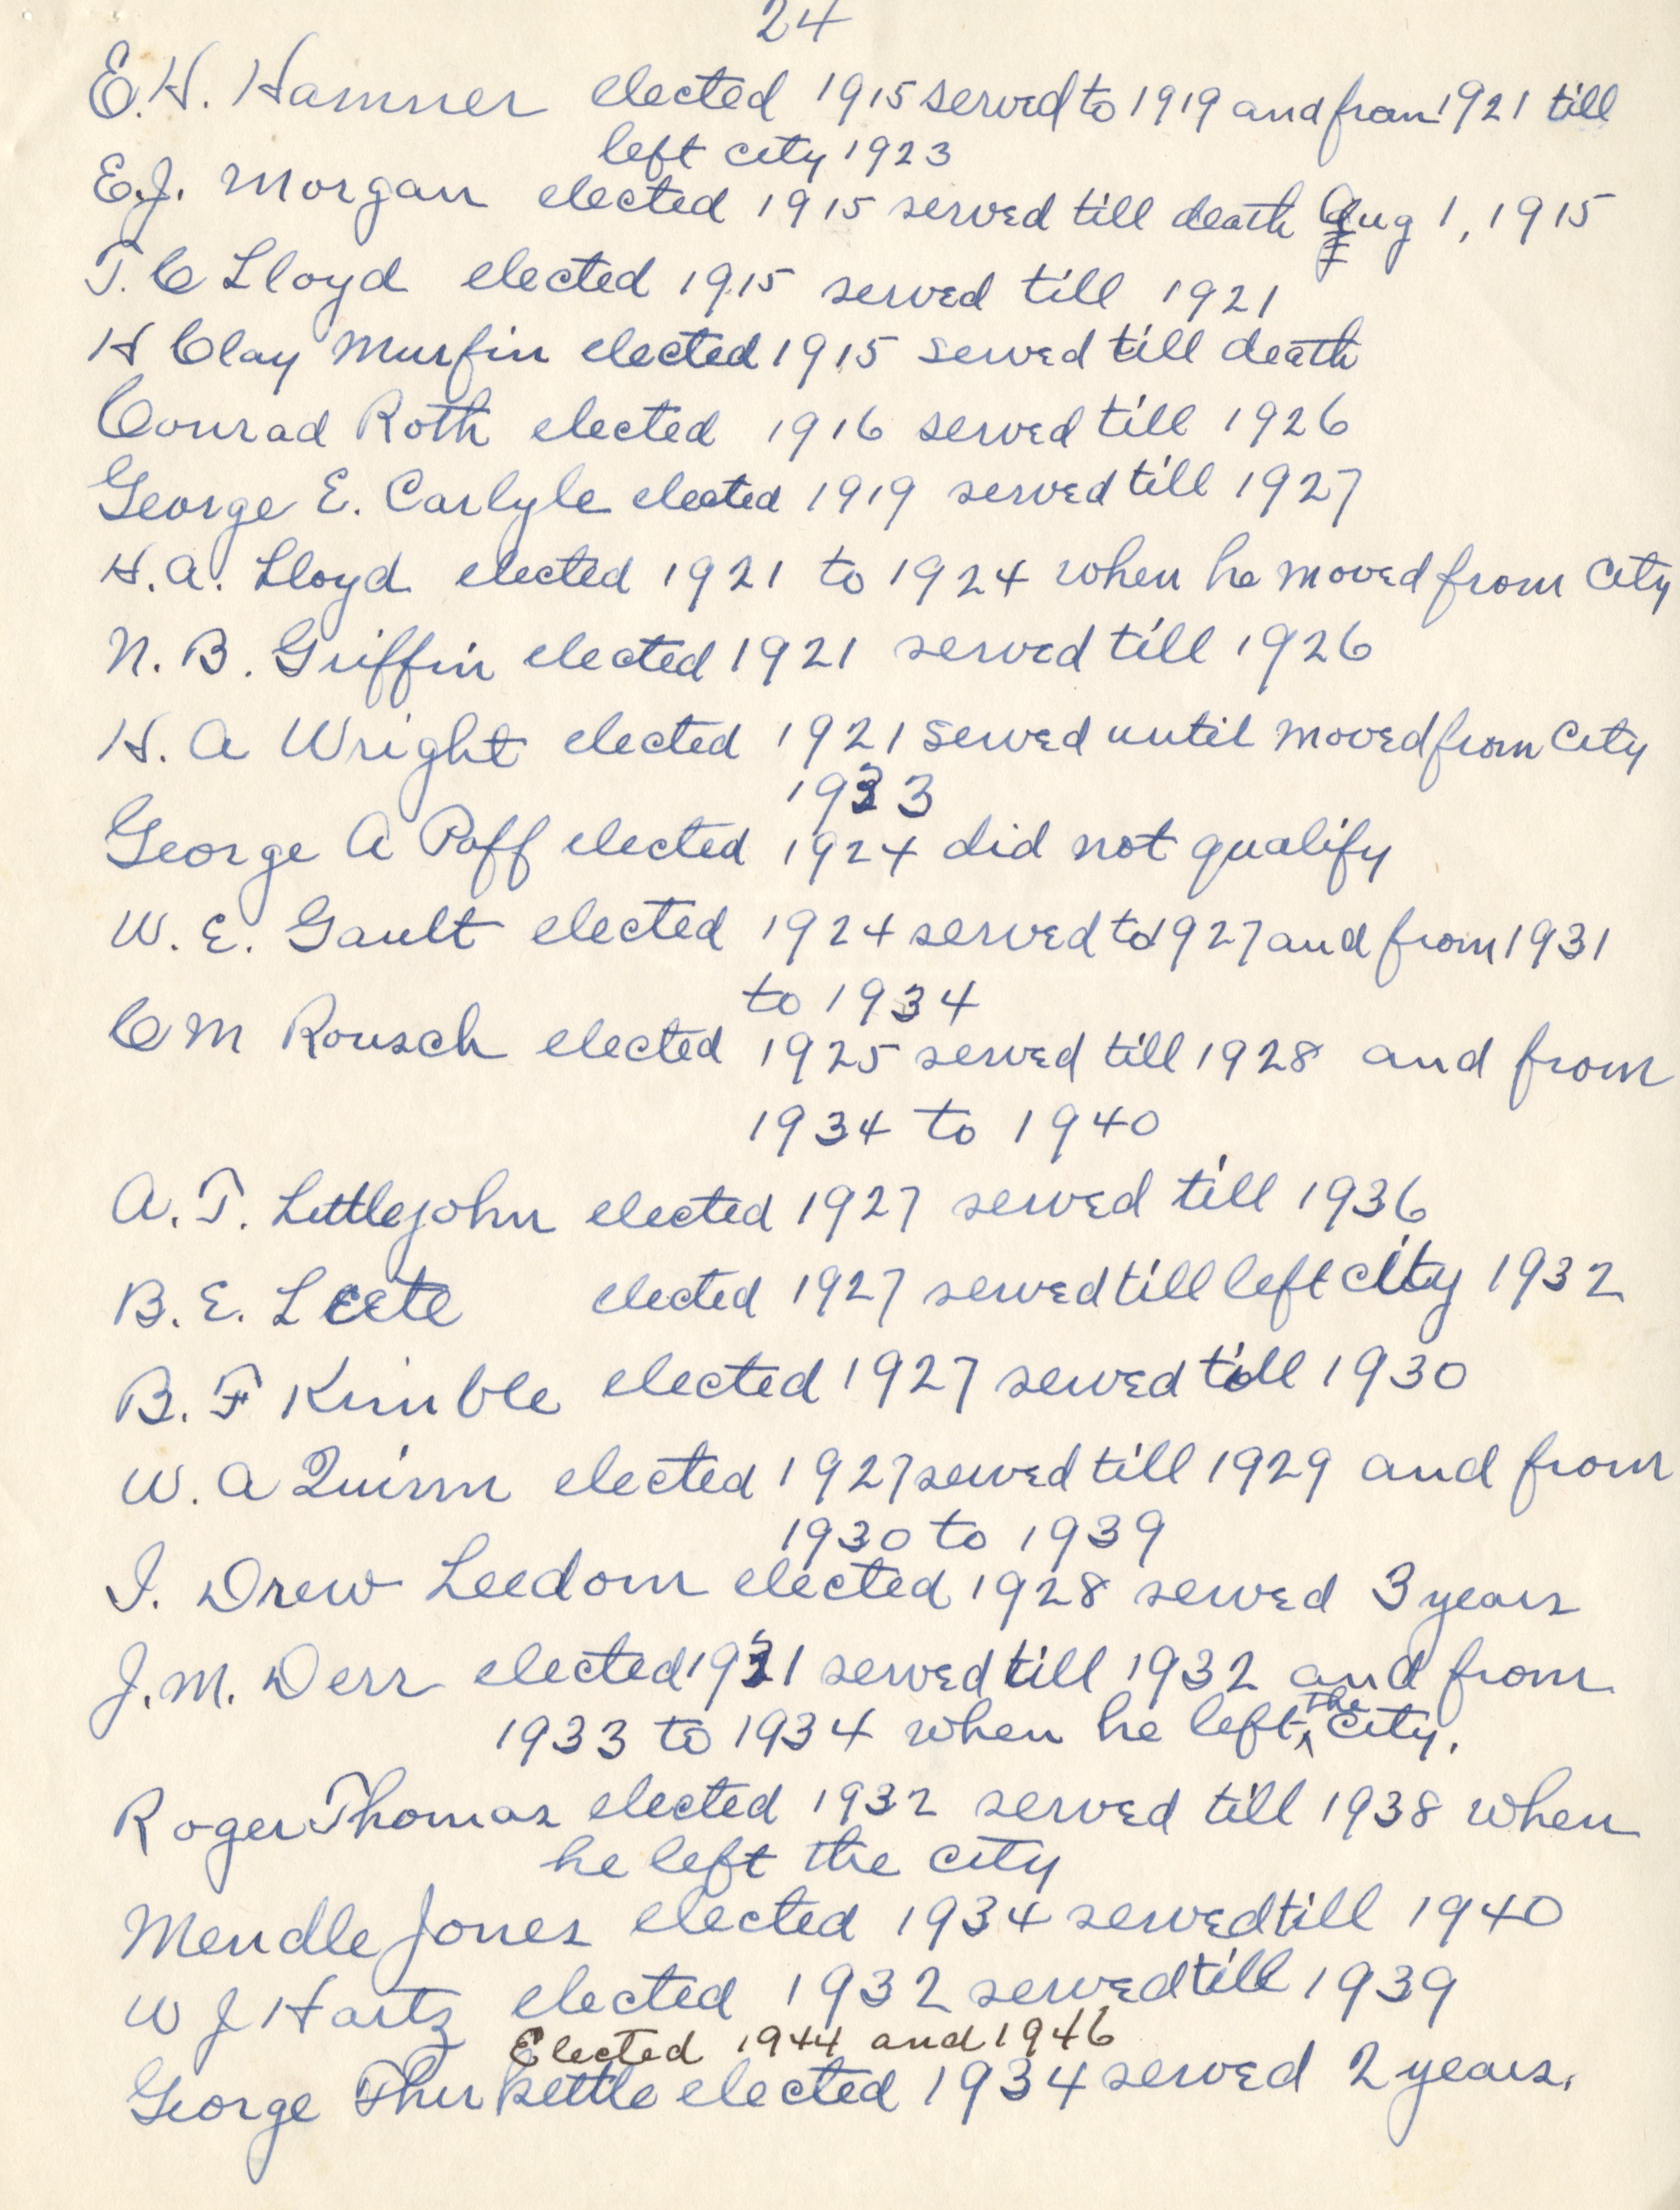 24
E. H. Hamner elected 1915 served to 1919 and from 1921 till
left city 1923
E. J. Morgan elected 1915 served till death Aug 1, 1915
T. C Lloyd elected 1915 served till 1921
H Clay Murfin elected 1915 served till death
Conrad Roth elected 1916 served till 1926
George E. Carlyle elected 1919 served till 1927
H. A. Lloyd elected 1921 to 1924 when he moved from City
N. B. Griffin elected 1921 served till 1926
H. A Wright elected 1921 served until moved from City
1933
George A Paff elected 1924 did not qualify
W. E. Gault elected 1924 served to 1927 and from 1931
to 1934
C M Rousch elected 1925 served till 1928 and from
1934 to 1940
A. T. Littlejohn elected 1927 served till 1936
B. E. Leete elected 1927 served till left city 1932
B. F Kimble elected 1927 served till 1930
W. A Quinn elected 1927 served till 1929 and from
1930 to 1939
I. Drew Leedom elected 1928 served 3 years
J. M. Derr elected 1931 served till 1932 and from
1933 to 1934 when he left the City.
Roger Thomas elected 1932 served till 1938 when
he left the city
Mendle Jones elected 1934 served till 1940
W J Hartz elected 1932 served till 1939
Elected 1944 and 1946
George Thurkettle elected 1934 served 2 years.